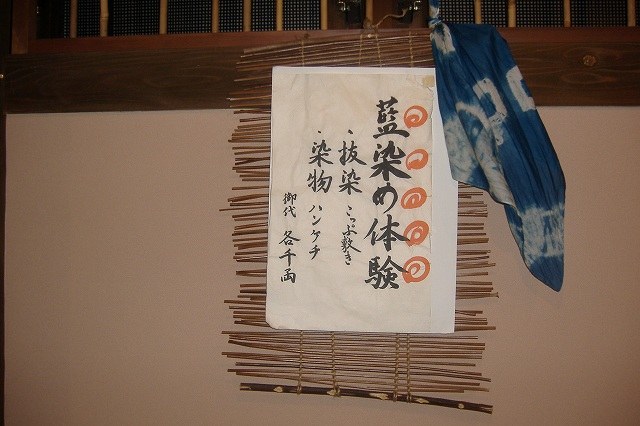 藍染め体験
・抜染 こっぷ敷き
・染物 ハンケチ
御代 各千両